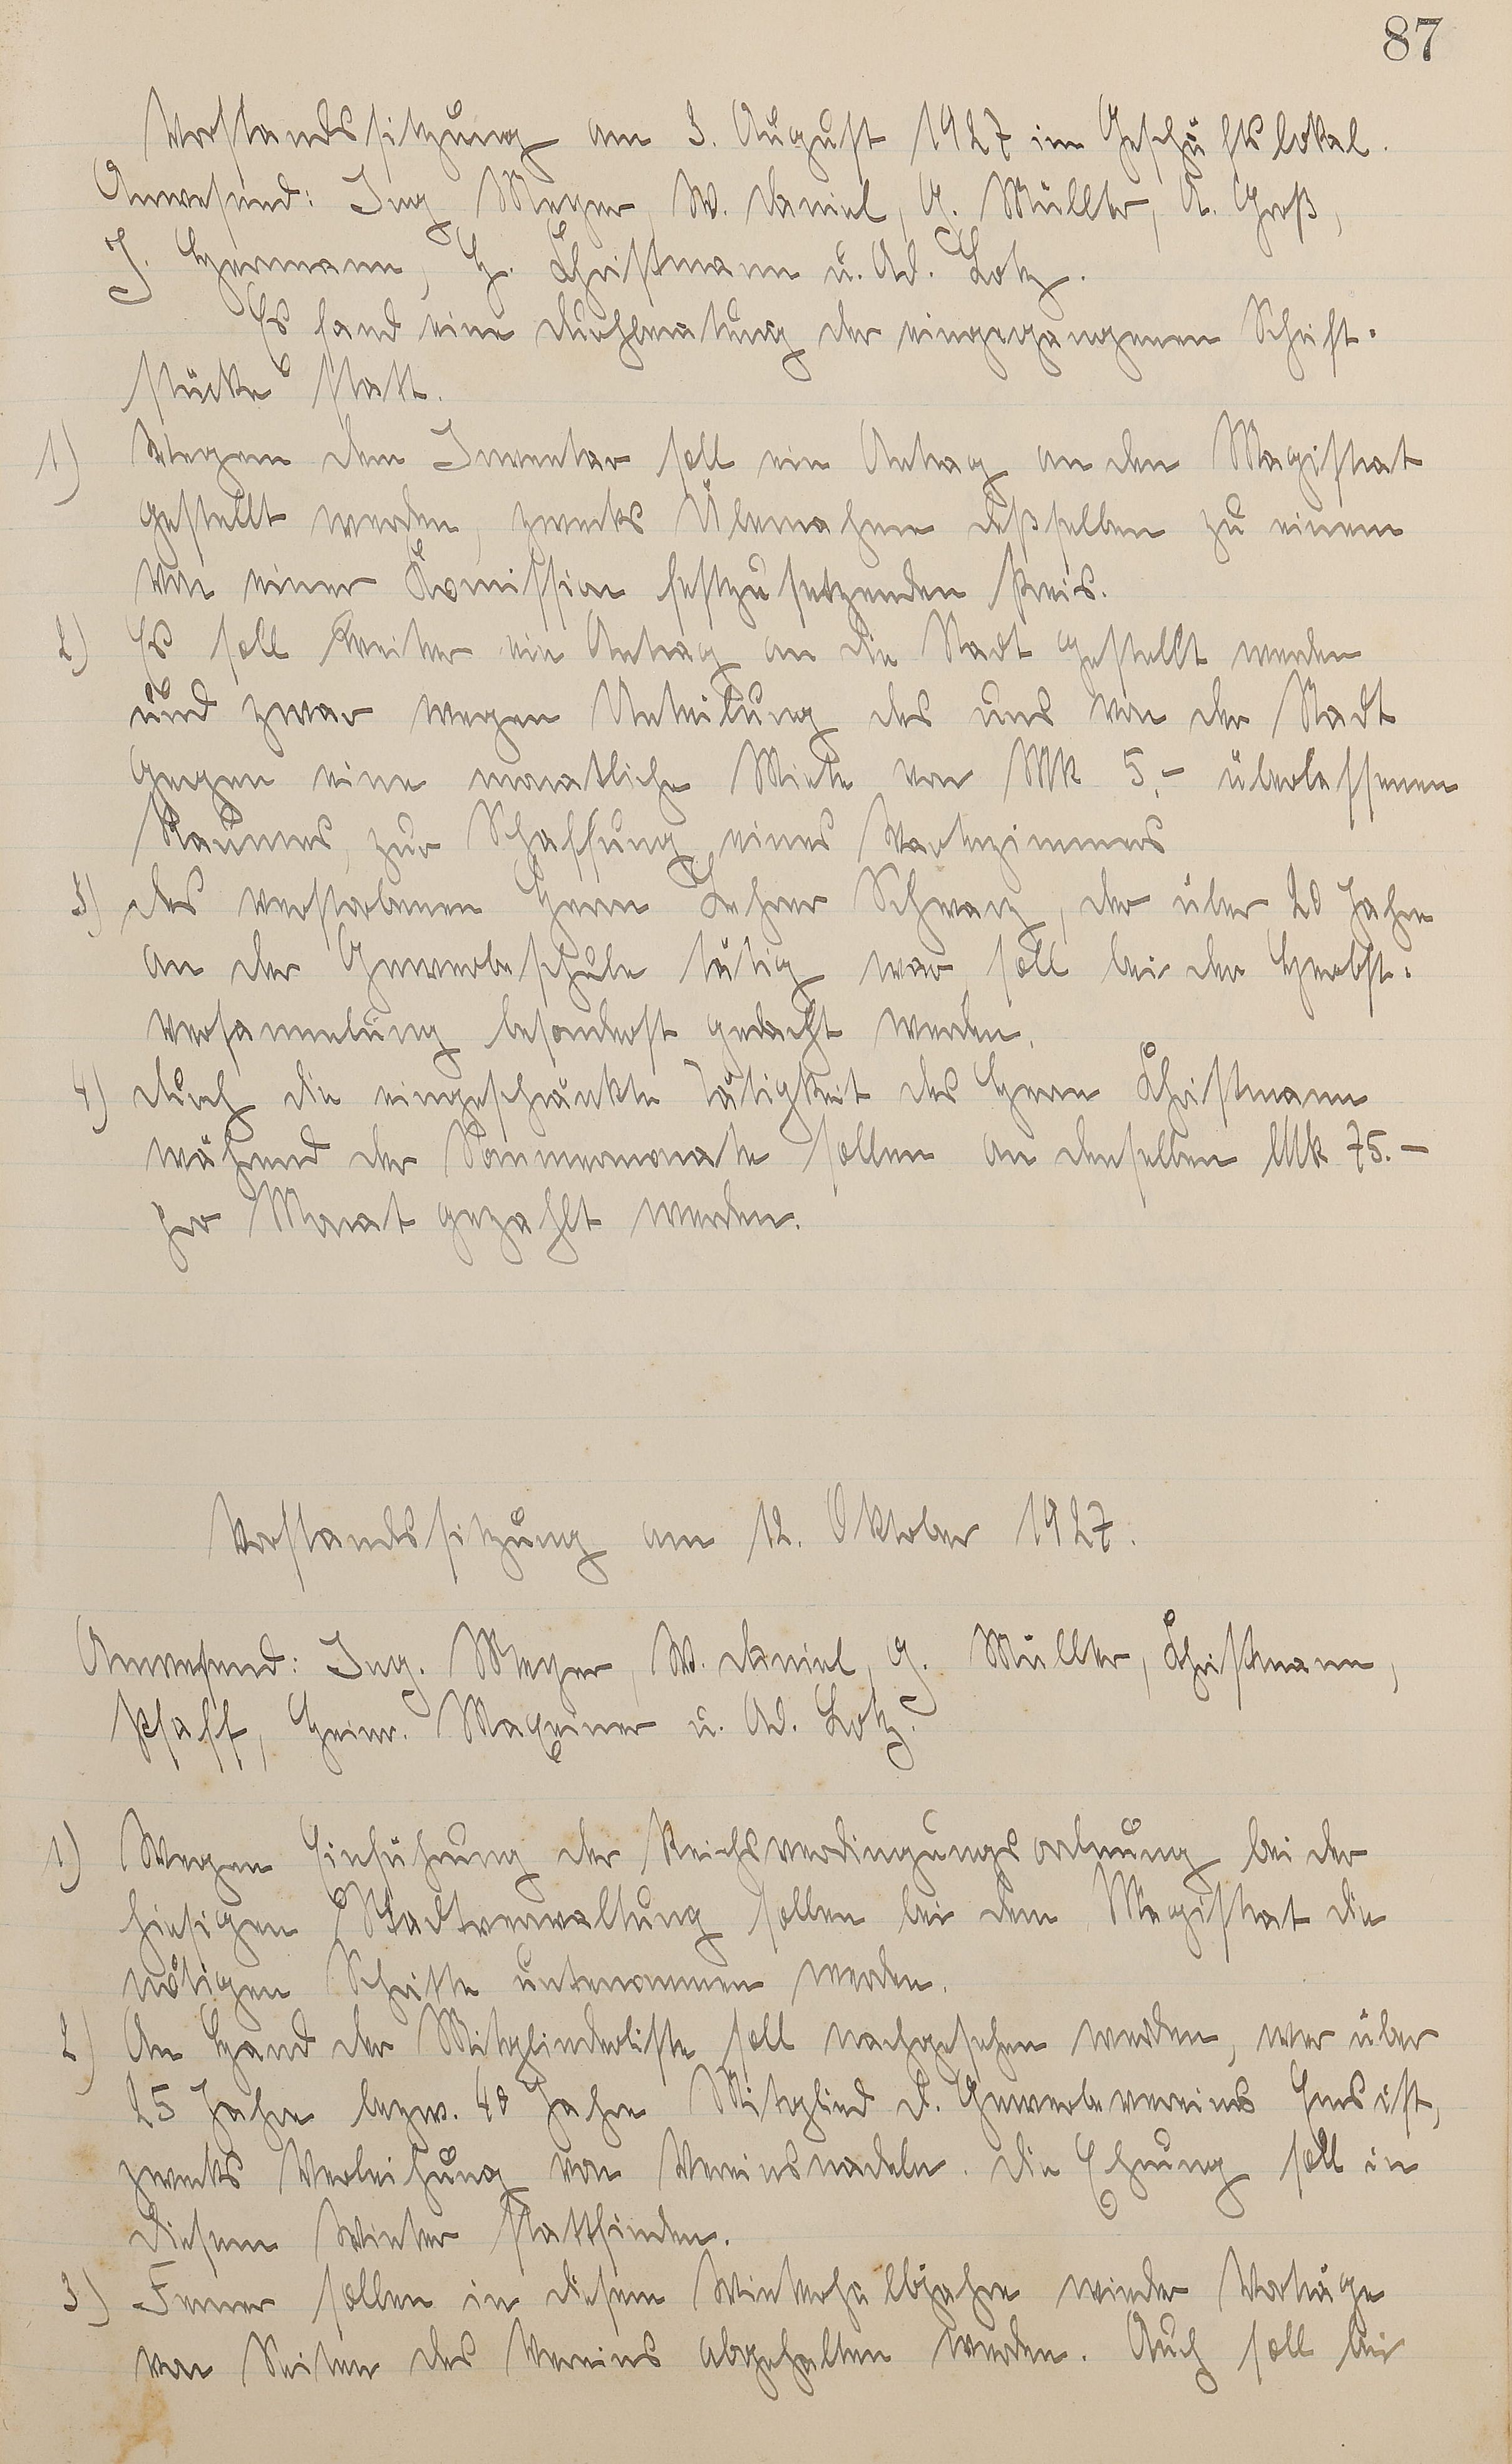 87
Vorstandssitzung am 3. August 1927 im Geschäftslokal.
Anwesend: Ing Meyer, W. Daniel, G. Müller, A. Groß,
J. Hermann, H. Christmann u. Ad. Lotz.
Es fand eine Durchberatung der eingegangenen Schrift-
stücke statt.
1) Wegen dem Inventar soll ein Antrag an den Magistrat
gestellt werden, zwecks Übernahme deßselben zu einem
von einer Komission festzusetzenden Preis.
2) Es soll weiter ein Antrag an die Stadt gestellt werden
und zwar wegen Unteilung des uns von der Stadt
gegen eine monatliche Miete von Mk 5,- überlassenen
Raumes, zur Schaffung eines Wartezimmers
3) Des verstorbenen Herrn Lehrer Schwarz, der über 20 Jahre
an der Gewerbeschule tätig war soll bei der Herbst-
versammlung besonderst gedacht werden.
4) Durch die eingeschränkte Tätigkeit des Herrn Christmann
während der Sommermonate sollen an denselben Mk 75.-
pro Monat gezahlt werden.
Vorstandssitzung am 12. Oktober 1927.
Anwesend: Ing. Meyer, W. Daniel, G. Müller, Christmann,
Pfaff, Heinr. Maxeiner u. Ad. Lotz.
1) Wegen Einführung der Reichsverdingungsordnung bei der
hiesigen Stadtverwaltung sollen bei dem Magistrat die
nötigen Schritte unternommen werden.
2) An Hand der Mitgliederliste soll nachgesehen werden, wer über
25 Jahre bezw. 40 Jahre Mitglied d. Gewerbevereins Ems ist,
zwecks Verleihung von Vereinsnadeln. Die Ehrung soll in
diesem Winter stattfinden.
3) Ferner sollen in diesem Winterhalbjahre wieder Vorträge
von Seiten des Vereins abgehalten werden. Auch soll bei